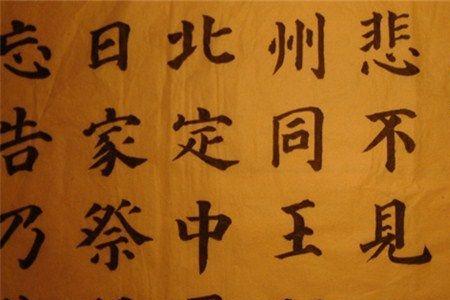 悲不見
州同王
北定中
日家祭
忘告乃